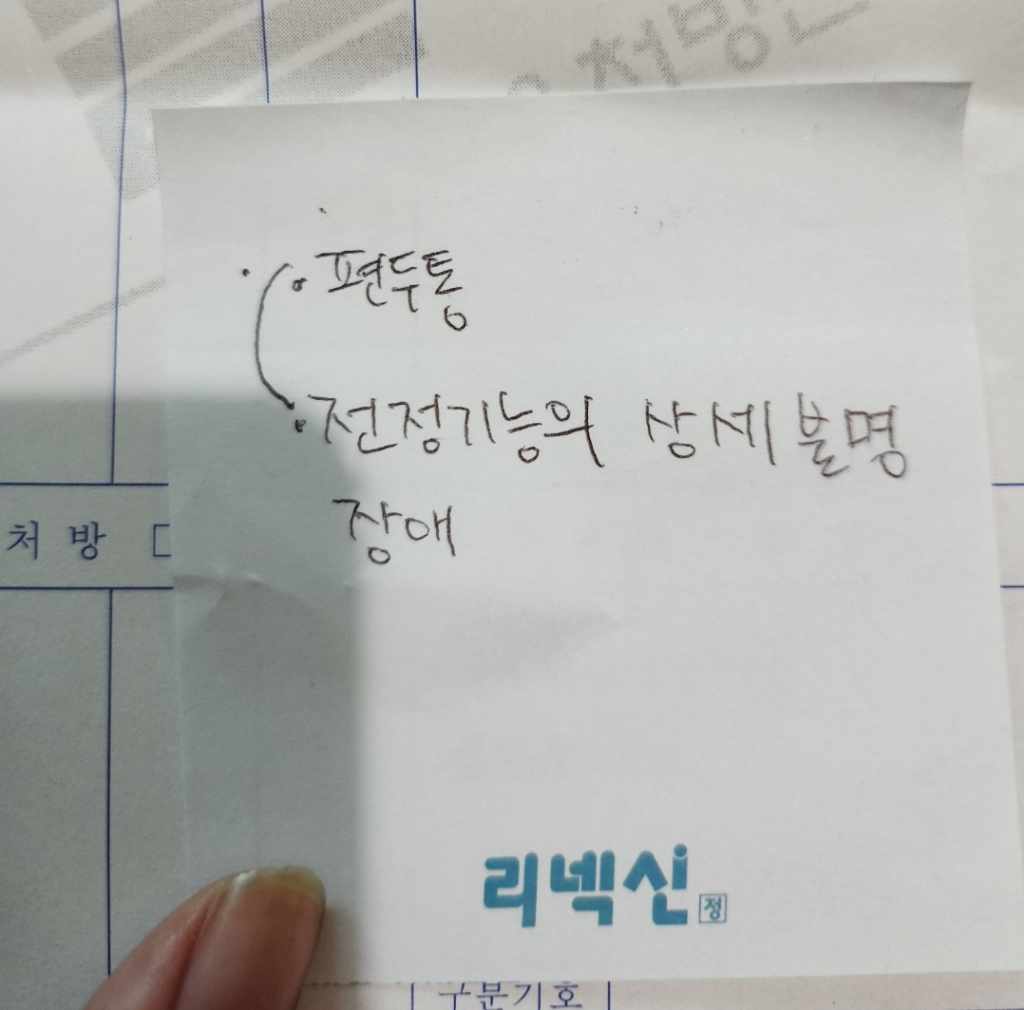 처방
편두통
전정기능의 상세불명
장애
처 방
리넥신 정
구분기호